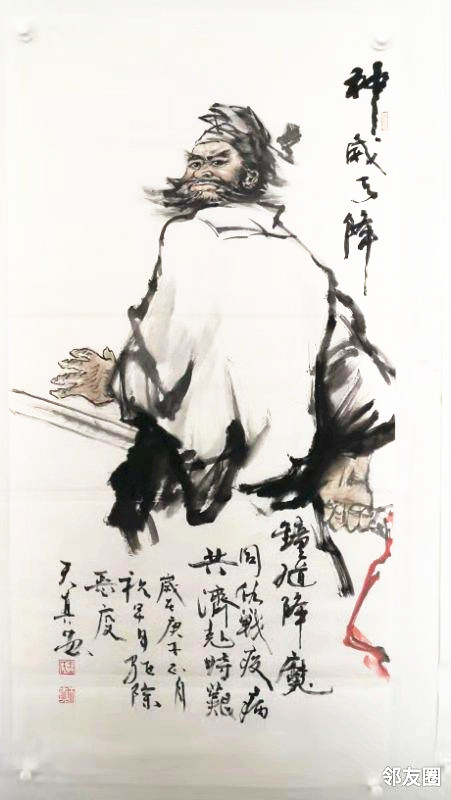 神威天降
鐘馗降魔
同仇戰疫病
共濟克時艱
歲在庚子正月
祝早日驅除
惡疫
天真畫
邻友圈